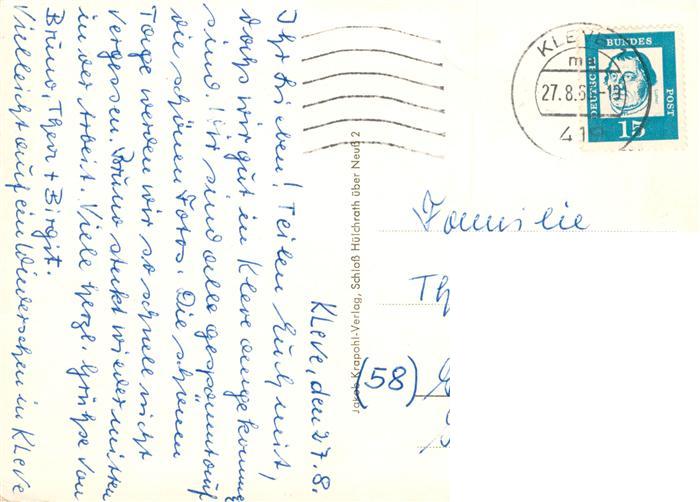 Kleve, den 27.8.
Ihr Lieben! Teilen Euch mit,
dass wir gut in Kleve angekommen
sind. Wir sind alle gespannt auf
die schönen Fotos. Die schönen
Tage werden wir so schnell nicht
vergessen. Bruno steckt wieder mitten
in der Arbeit. Viele herzl. Grüße von
Bruno, Theo + Birgit.
Vielleicht auf ein Wiedersehen in Kleve
Jakob Krapohl-Verlag, Schloß Hülchrath über Neuß 2
KLEVE
27.8.6
419
DEUTSCHE BUNDES POST
15
Familie
Th
(58)